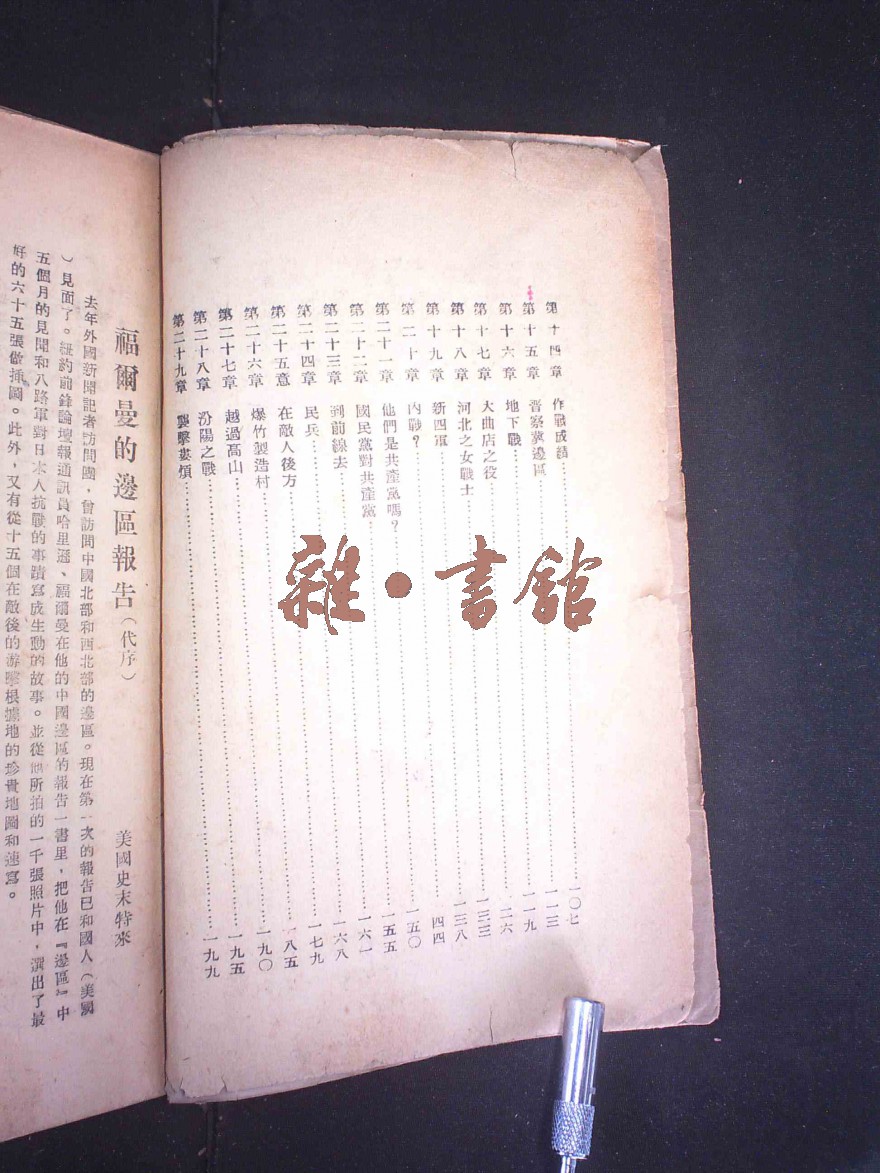 第十四章 作戰成績 一〇七
第十五章 晋察冀邊區 一一三
第十六章 地下戰 一一九
第十七章 大曲店之役 一二六
第十八章 河北之女戰士 一三三
第十九章 新四軍 一三八
第二十章 內戰? 四四
第二十一章 他們是共產黨嗎? 一五〇
第二十二章 國民黨對共產黨 一五五
第二十三章 到前線去 一六一
第二十四章 民兵 一六八
第二十五意 在敵人後方 一七九
第二十六章 爆竹製造村 一八五
第二十七章 越過高山 一九〇
第二十八章 汾陽之戰 一九五
第二十九章 襲擊婁煩 一九九
福爾曼的邊區報告(代序)
美國史末特萊
去年外國新聞記者訪問團,曾訪問中國北部和西北部的邊區。現在第一次的報告已和國人(美國
)見面了。紐約前鋒論壇報通訊員哈里遜、福爾曼在他的中國邊區的報告一書里,把他在『邊區』中
五個月的見聞和八路軍對日本人抗戰的事蹟寫成生動的故事。並從他所拍的一千張照片中,選出了最
好的六十五張做插圖。此外,又有從十五個在敵後的游擊根據地的珍貴地圖和速寫。
雜·書館